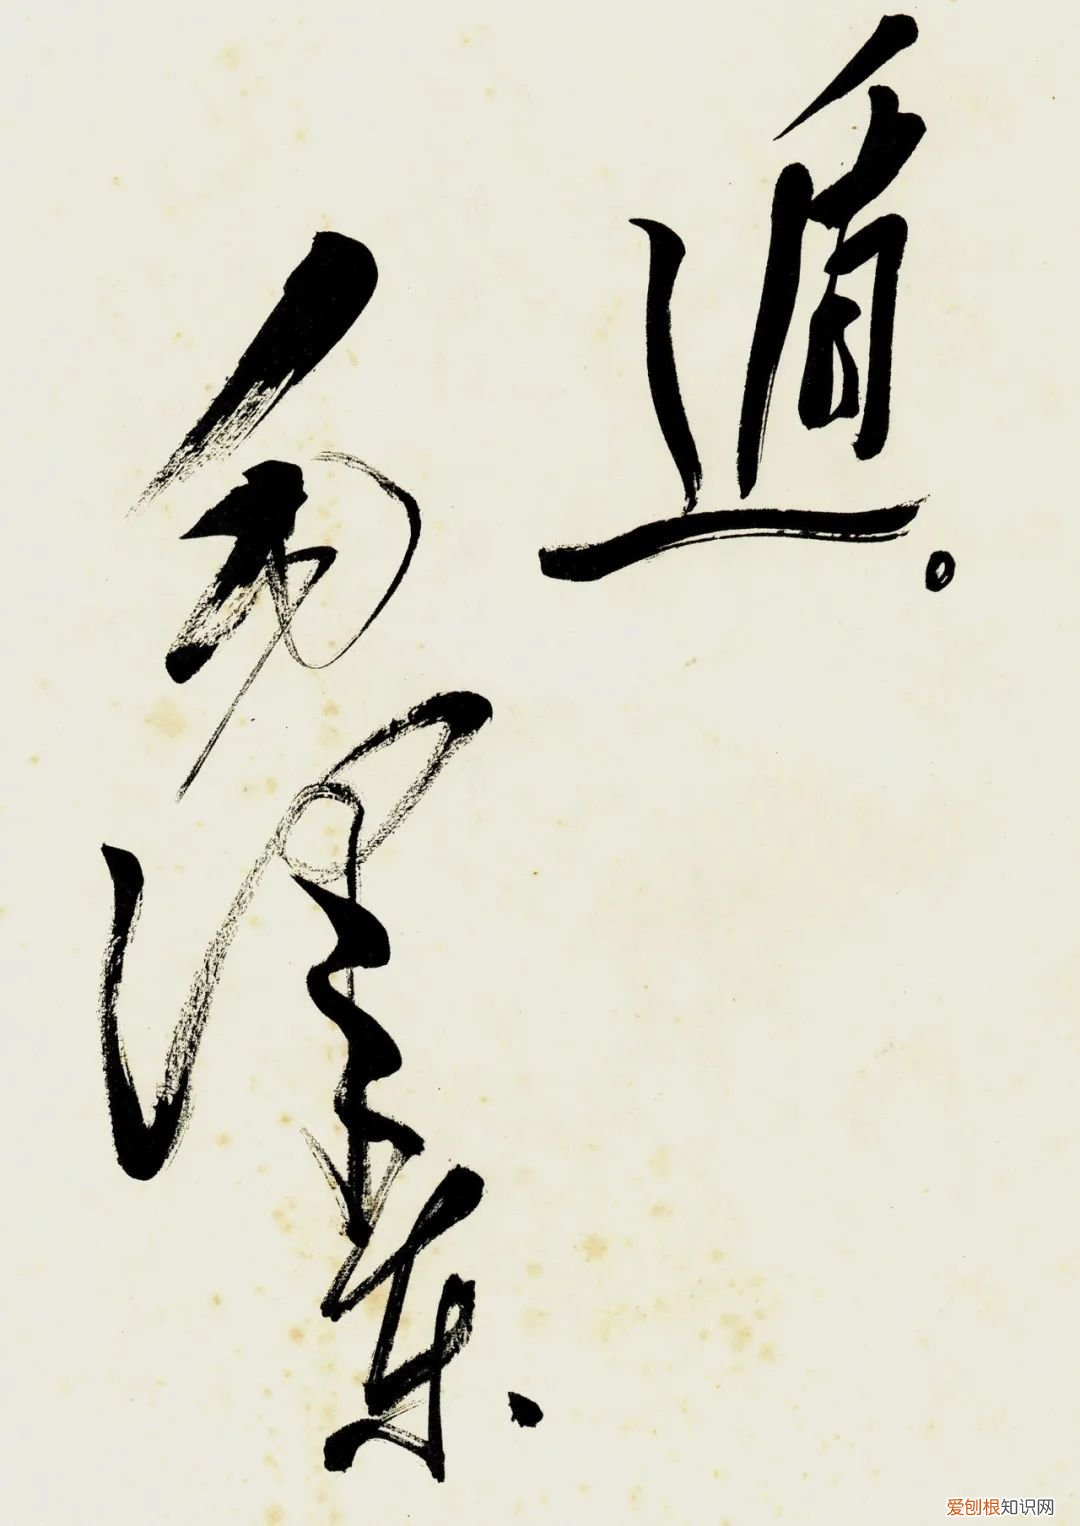 遁。
毛泽东
爱刨根知识网